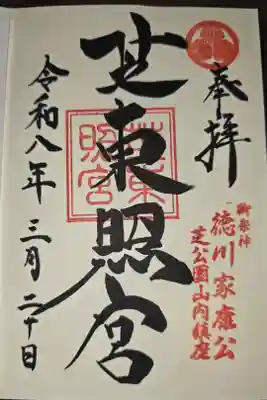 奉拝
御祭神
徳川家康公
芝公園山内鎮座
芝東照宮
芝東
照宮
令和八年 三月 二十日